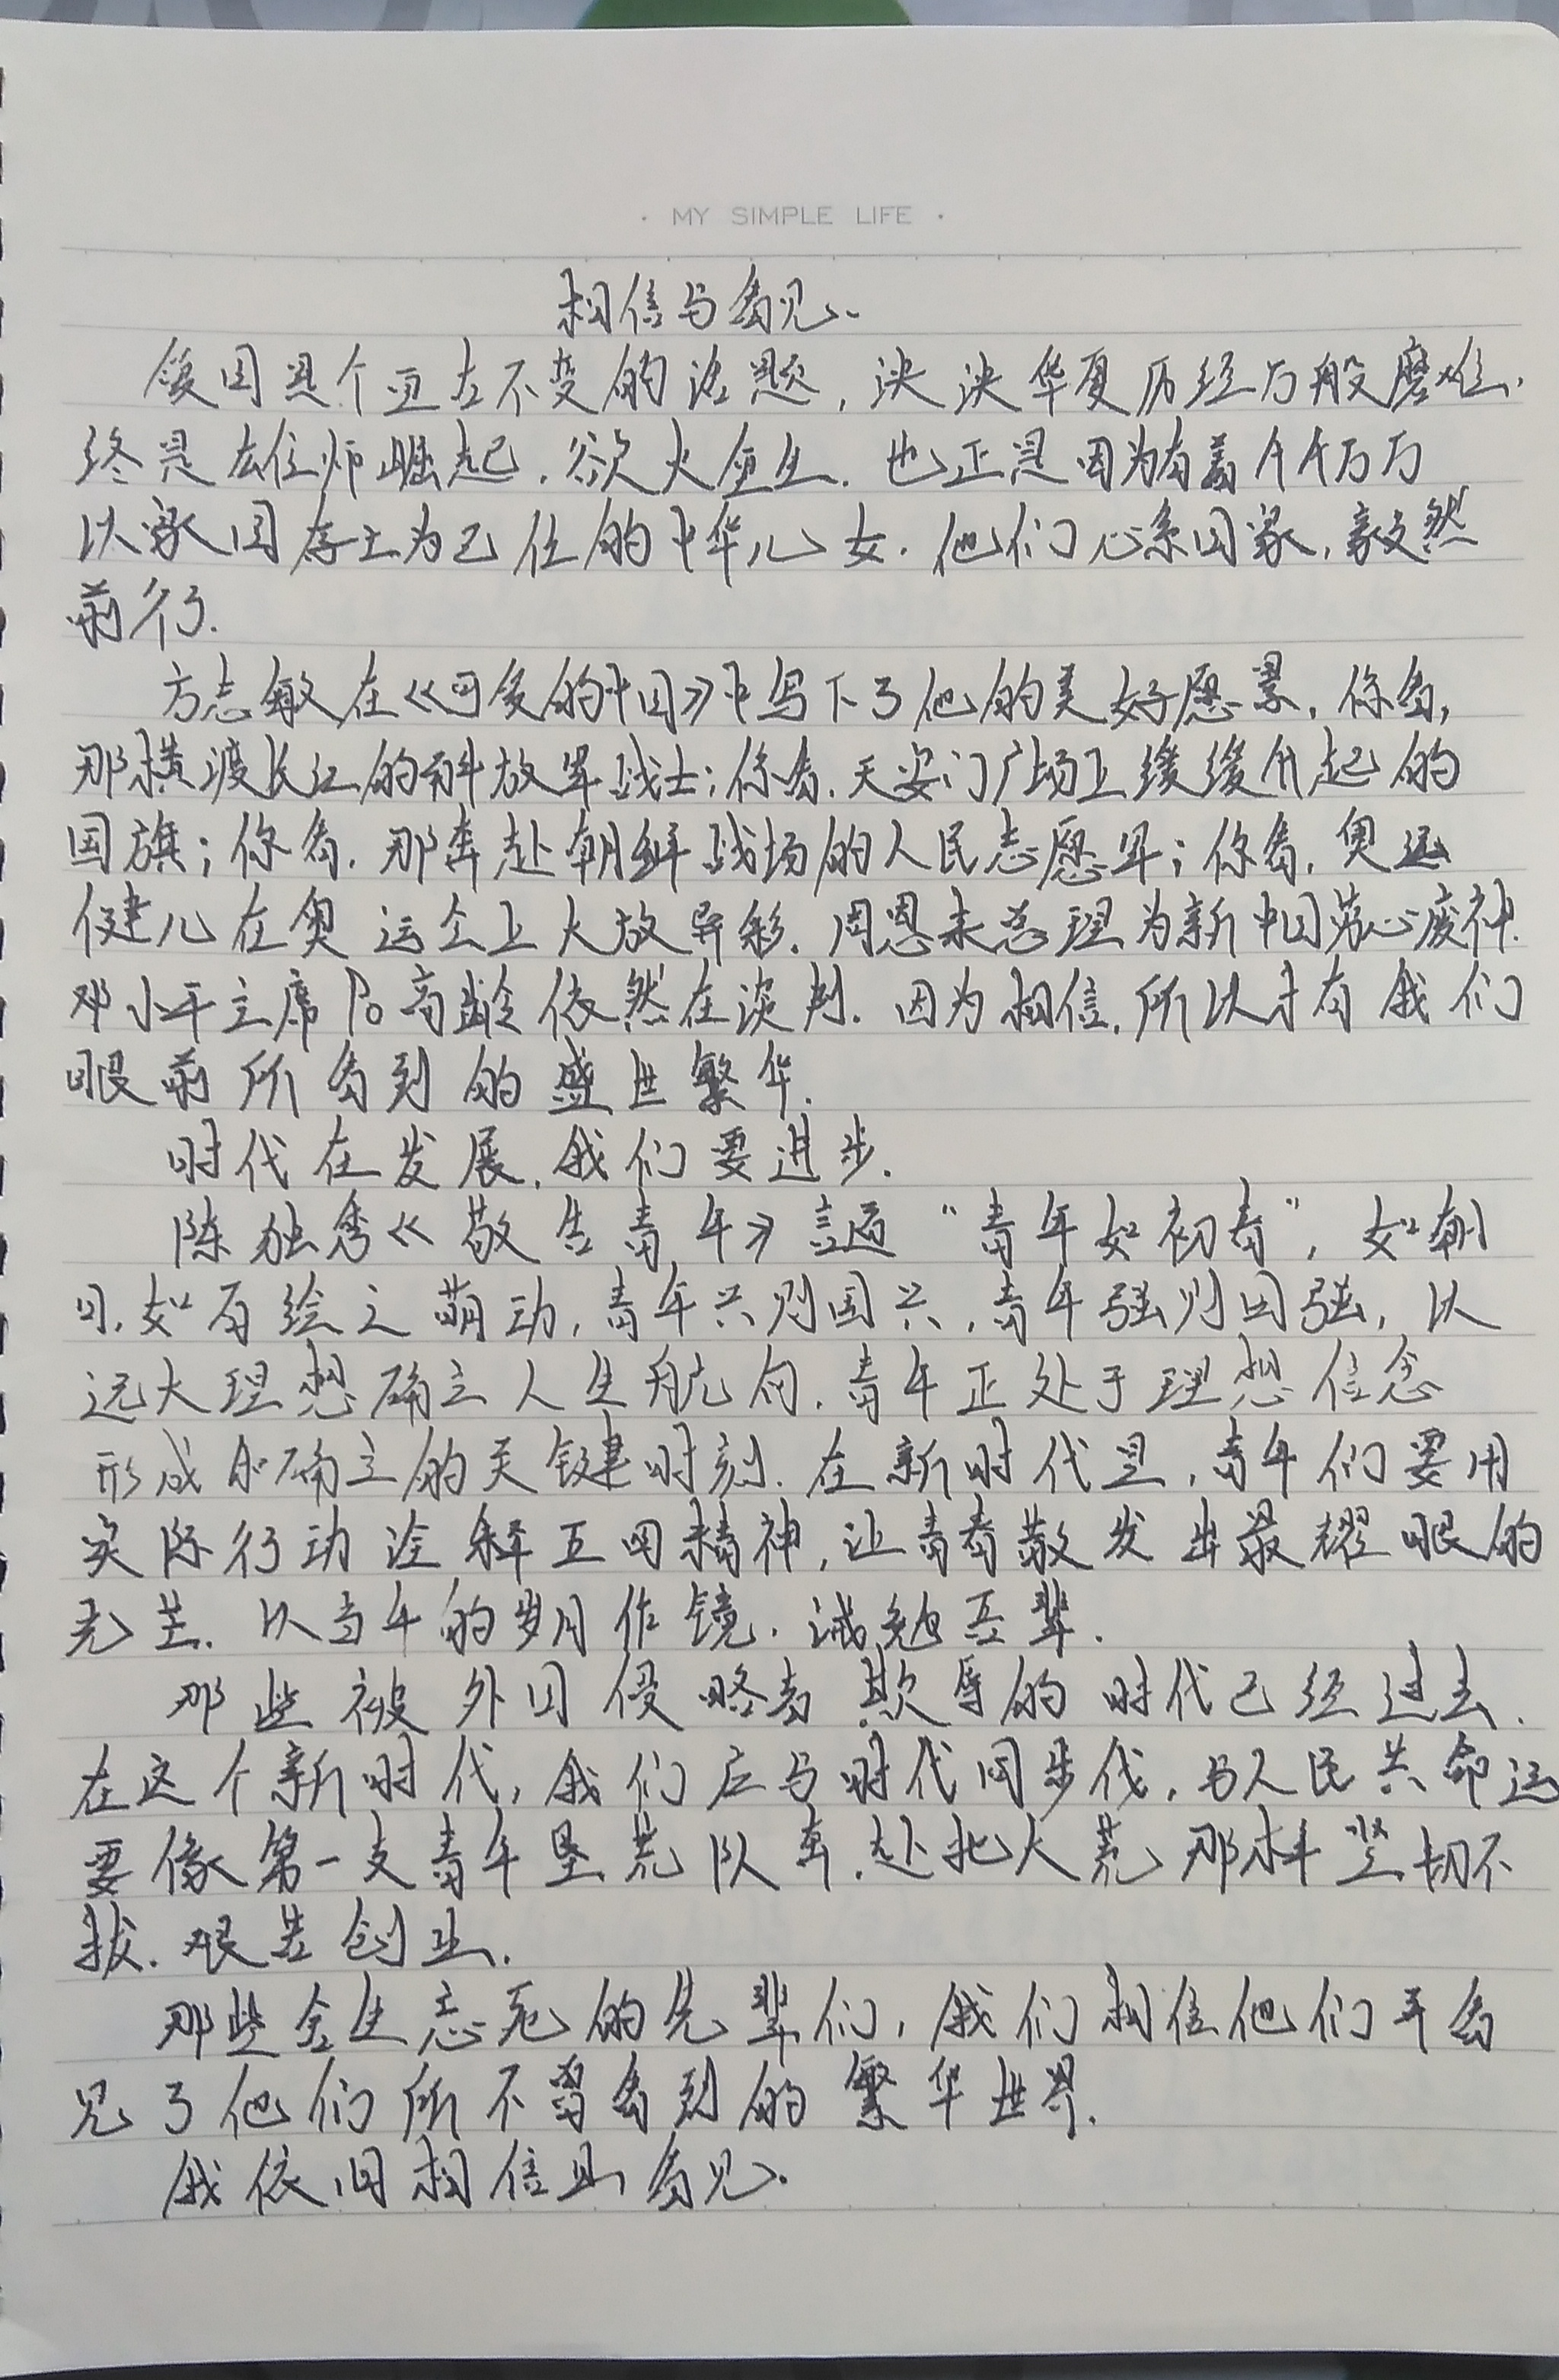 · MY SIMPLE LIFE ·
相信与看见、
爱国是个亘古不变的话题，泱泱华夏历经万般磨难.
终是雄师崛起.欲火重生.也正是因为有着千千万万
以家国存亡为己任的中华儿女.他们心系国家,毅然
前行.
方志敏在《可爱的中国》中写下了他的美好愿景,你看,
那横渡长江的解放军战士;你看.天安门广场上缓缓升起的
国旗;你看.那奔赴朝鲜战场的人民志愿军;你看,奥运
健儿在奥运会上大放异彩.周恩来总理为新中国劳心废神.
邓小平主席80高龄依然在谈判.因为相信,所以才有我们
眼前所看到的盛世繁华.
时代在发展,我们要进步.
陈独秀《敬告青年》言道“青年如初春”,如朝
日,如百绘之萌动,青年兴则国兴,青年强则国强,以
远大理想确立人生航向.青年正处于理想信念
形成和确立的关键时刻.在新时代里,青年们要用
实际行动诠释五四精神,让青春散发出最耀眼的
光芒.以当年的岁月作镜.诫勉吾辈.
那些被外国侵略者欺辱的时代已经过去.
在这个新时代,我们应与时代同步伐,与人民共命运
要像第一支青年垦荒队奔.赴北大荒那样坚韧不
拔.艰苦创业.
那些舍生忘死的先辈们,我们相信他们并看
见了他们所不曾看到的繁华世界.
我依旧相信且看见.